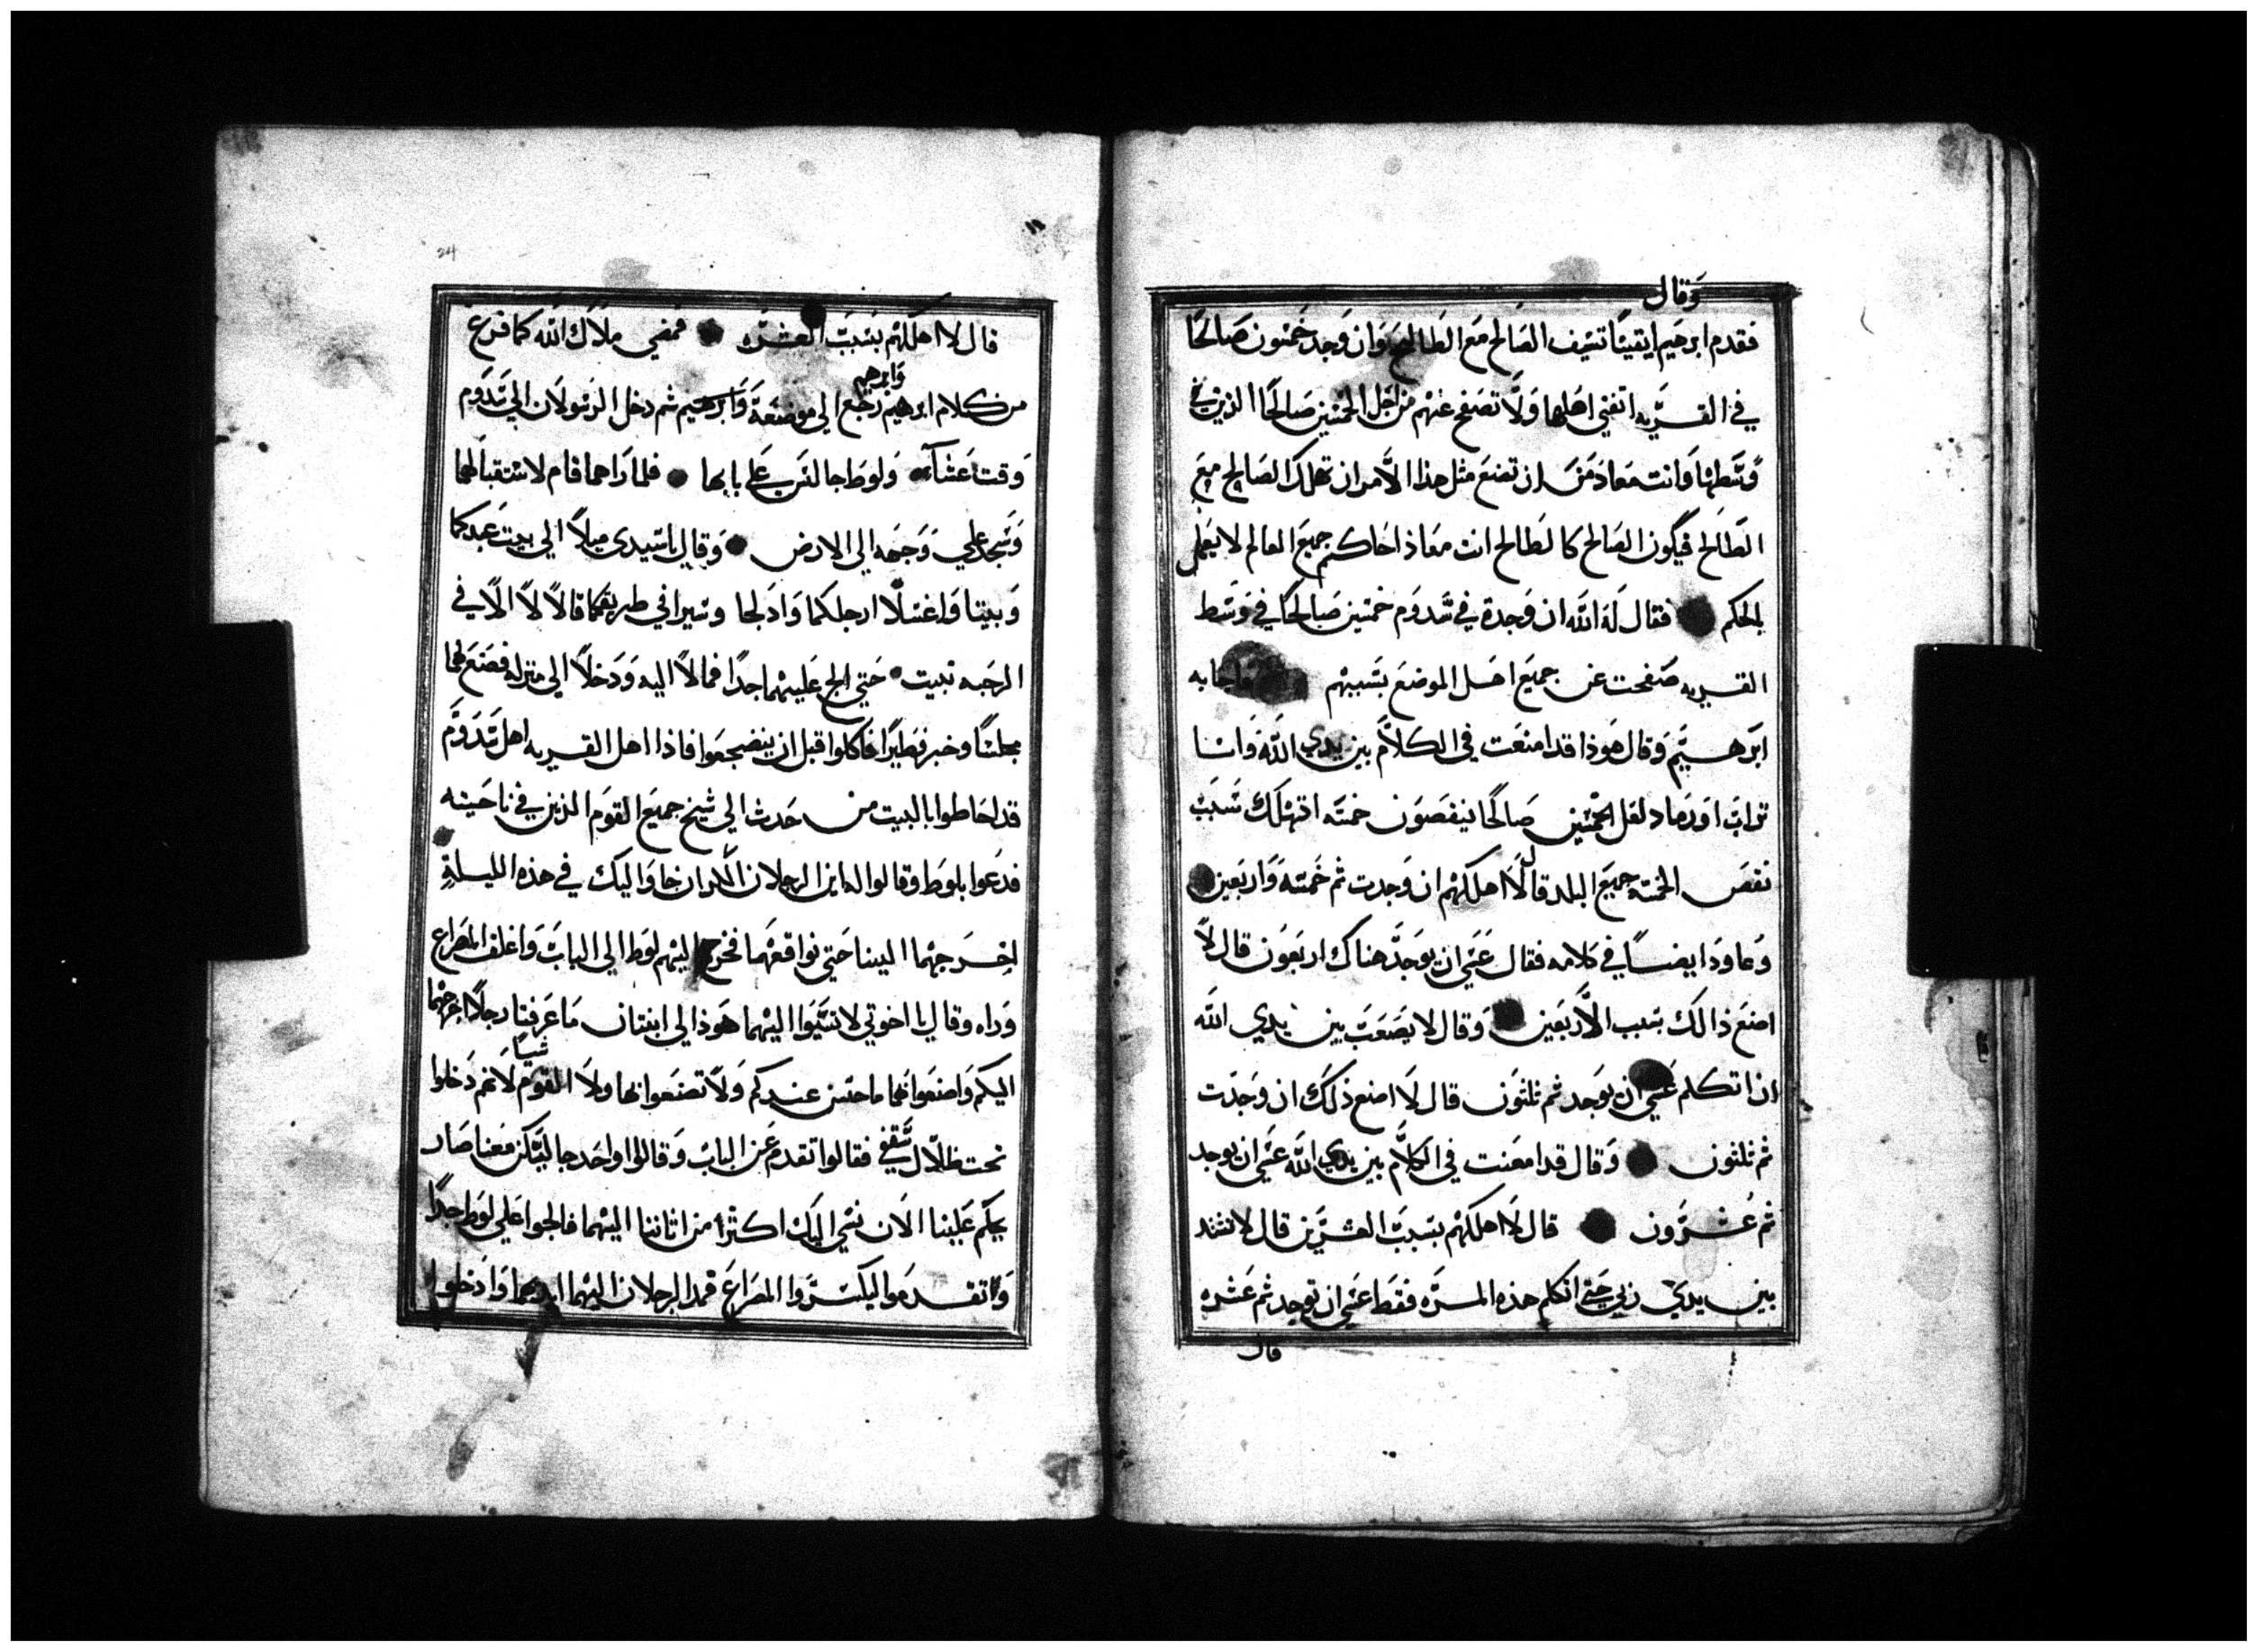 وقال
فقدم ابرهيم ايقينًا تسيف الصالح مع الطالح وان وجد خمسون صالحًا
في القريه اتفني اهلها ولا تصفح عنهم من اجل الخمسين صالحًا الذين في
وسطها وانت معاذ من ان تصنع مثل هذا الامر ان تهلك الصالح مع
الطالح فيكون الصالح كالطالح انت معاذ احاكم جميع العالم لا يعمل
بالحكم فقال له الله ان وجدة في سدوم خمسين صالحًا في وسط
القريه صفحت عن جميع اهل الموضع بسببهم فاجابه
ابرهيم وقال هوذا قد امنعت في الكلام بين يدي الله وانا
تراب او رماد لعل الخمسين صالحًا فينقصون خمسه اتهلك بسبب
نقص الخمسه جميع البلد قال لا اهلكهم ان وجدت ثم خمسة واربعين
وعاود ايضًا في كلامه فقال عسي ان يوجد هناك اربعون قال لا
اصنع ذالك بسبب الاربعين وقال لا يصعب بين يدي الله
ان اتكلم عسي ان يوجد ثم ثلثون قال لا اصنع ذلك ان وجدت
ثم ثلثون وقال قد امعنت في الكلام بين يدي الله عسي ان يوجد
ثم عشرون قال لا اهلكهم بسبب العشرين قال لا تشتد
بين يدي ربي حتي اتكلم هذه المره فقط عسي ان توجد ثم عشره
قال
24
قال لا اهلكهم بسبب العشره فمضي ملاك الله كما فرغ
وابرهيم
من كلام ابرهيم رجع الي موضعة وابرهيم ثم دخل الرسولان الي سدوم
وقت عشاء ولوط جالس علي بابها فلما راهما قام لاستقبالهما
وسجد علي وجهه الي الارض وقال يا سيدي ميلا الي بيت عبدكما
وبيتا واغسلا ارجلكما وادلجا وسيرا في طريقكما قالا لا الا في
الرحبه نبيت حتي الح عليهما جدًا فمالا اليه ودخلا الي منزله فصنع لهما
مجلسًا وخبز فطيرًا فاكلوا قبل ان ينضجعوا فاذا اهل القريه اهل سدوم
قد احاطوا بالبيت من حدث الي شيخ جميع القوم الذين في ناحيته
فدعوا بلوط وقالوا له اين الرجلان اللذان جاوا اليك في هذه الليلة
اخرجهما الينا حتي نواقعهما فخرج اليهم لوط الي الباب واغلق المصراع
وراه وقال يا اخوتي لا تسيوا اليهما هوذا لي ابنتان ما عرفتا رجلا اخرجهما
شيا
اليكم واصنعوا لهما ما حسن عندكم ولا تصنعوا بها ولا القوم لانهم دخلوا
تحت ظلال سقفي فقالوا تقدم عن الباب وقالوا واحد جا ليسكن معنا صار
يحكم علينا الان نسي اليك اكثر من اتاننا اليهما فالحوا علي لوط جدًا
وتقدموا ليكسروا المصراع فمد الرجلان اليهما ايديهما وادخلوا